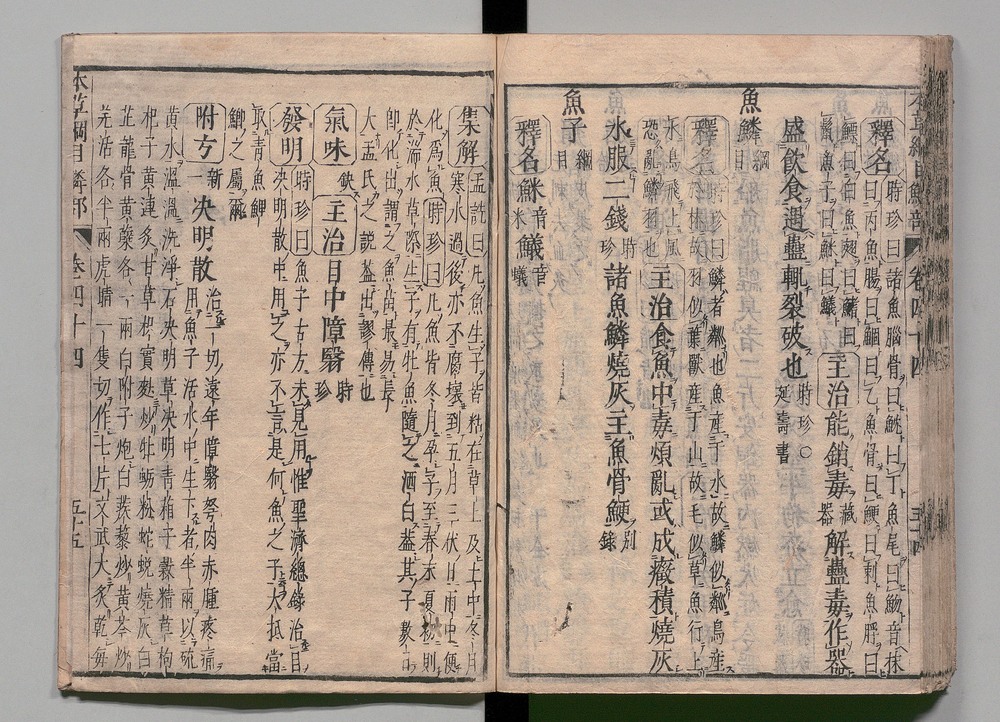 釋名時珍曰諸魚腦骨曰
曰丙魚腸曰鮰曰乙魚骨曰鯁曰刺魚脬曰
鰾曰白魚翅曰鰭曰
鬣魚子曰鮇曰鱶
主治能銷毒藏器解蠱毒作器
盛飲食遇蠱輒裂破也時珍○延壽書
魚鱗綱目
釋名時珍曰鱗者粼也魚產于水故鱗似粼鳥產
于林故羽似葉獸產于山故毛似草魚行上
水鳥飛上風
恐亂鱗羽也
主治食魚中毒煩亂或成癥積燒灰
水服二錢時珍諸魚鱗燒灰主魚骨鯁別錄
魚子綱目
釋名鮇音米鱶音蟻
集解孟詵曰凡魚生子皆粘在草上及土中冬月
寒水過後亦不腐壞到五月三伏日雨中便
化爲魚時珍曰凡魚皆冬月孕子至春末夏初則
於湍水草際生子有牡魚隨之洒白蓋其子數日
卽化出謂之魚苗最易長
大孟氏之說蓋出謬傳也
氣味缺主治目中障瞖時珍
發明時珍曰魚子古方未見用惟聖濟總錄治目
決明散中用之亦不言是何魚之子大抵當
取青魚鯉
鯽之屬爾
附方新一決明散治一切遠年障瞖胬肉赤腫疼痛
用魚子活水中生下者半兩以硫
黃水溫溫洗淨石決明草決明青葙子穀精草枸
杞子黃連炙甘草枳實麩炒牡蠣粉蛇蛻燒灰白
芷龍骨黃蘗各一兩白附子炮白蒺藜炒黃芩炒
羌活各半兩虎睛一隻切作七片文武大炙乾每
本草綱目鱗部 卷四十四 五十五